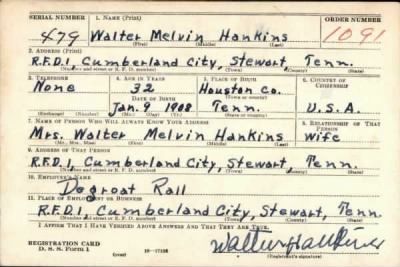 SERIAL NUMBER 1. NAME (Print) ORDER NUMBER
479 Walter Melvin Hankins 1091
(First) (Middle) (Last)
2. ADDRESS (Print)
R.F.D.1, Cumberland City, Stewart, Tenn.
(Number and street or R. F. D. number) (Town) (County) (State)
3. TELEPHONE 4. AGE IN YEARS 5. PLACE OF BIRTH 6. COUNTRY OF CITIZENSHIP
None 32 Houston Co.
DATE OF BIRTH (Town or county)
Jan. 9 1908 Tenn. U.S.A.
(Exchange) (Number) (Mo.) (Day) (Yr.) (State or country)
7. NAME OF PERSON WHO WILL ALWAYS KNOW YOUR ADDRESS 8. RELATIONSHIP OF THAT PERSON
Mrs. Walter Melvin Hankins Wife
(Mr., Mrs., Miss) (First) (Middle) (Last)
9. ADDRESS OF THAT PERSON
R.F.D.1, Cumberland City, Stewart, Tenn.
(Number and street or R. F. D. number) (Town) (County) (State)
10. EMPLOYER'S NAME
Degroat Rall
11. PLACE OF EMPLOYMENT OR BUSINESS
R.F.D.1, Cumberland City, Stewart, Tenn.
(Number and street or R. F. D. number) (Town) (County) (State)
I AFFIRM THAT I HAVE VERIFIED ABOVE ANSWERS AND THAT THEY ARE TRUE.
REGISTRATION CARD
D. S. S. Form 1 16-17105 (Registrant's signature)